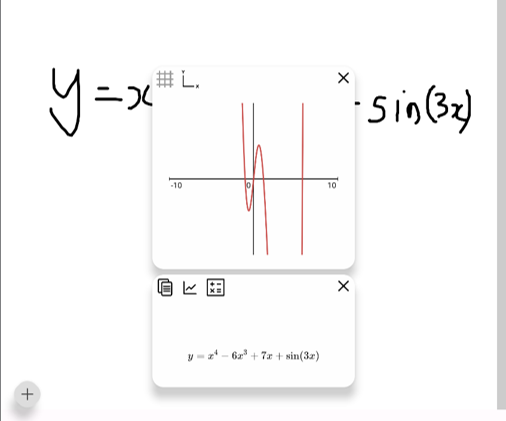 y = x
sin(3x)
-10 0 10
y = x⁴ − 6x³ + 7x + sin(3x)